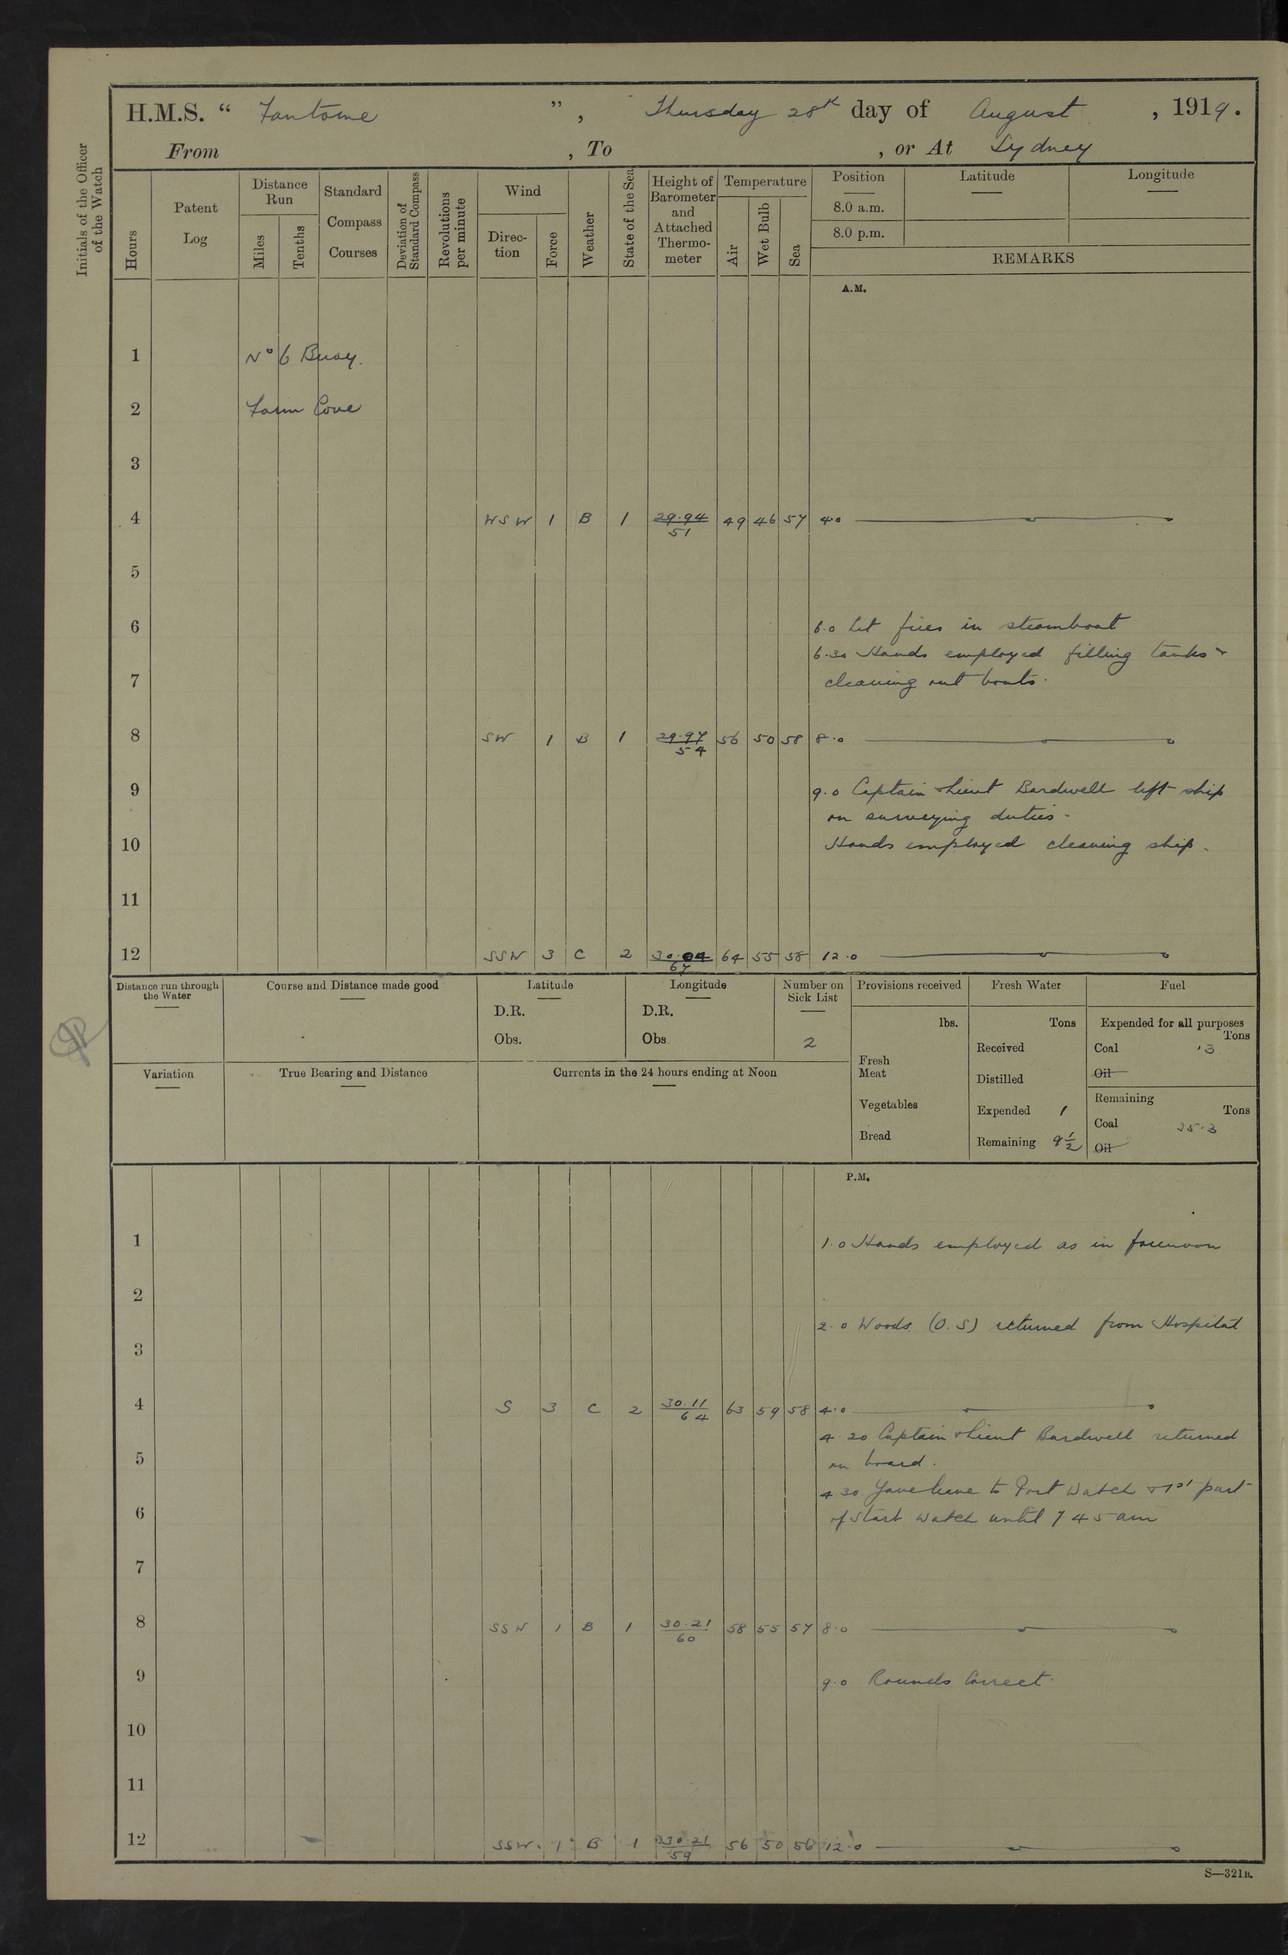 H.M.S. “ Fantome ”, Thursday 28th day of August, 1919.
From , To , or At Sydney
Initials of the Officer of the Watch
Hours
Patent Log
Distance Run
Miles
Tenths
Standard Compass Courses
Deviation of Standard Compass
Revolutions per minute
Wind
Direction
Force
Weather
State of the Sea
Height of Barometer and Attached Thermometer
Temperature
Air
Wet Bulb
Sea
Position Latitude Longitude
8.0 a.m.
8.0 p.m.
REMARKS
A.M.
1 No 6 Buoy.
2 Farm Cove
3
4 WSW 1 B 1 29.94/51 49 46 57 4.0
5
6 6.0 Lit fires in steamboat
6.30 Hands employed filling tanks &
7 cleaning out boats.
8 SW 1 B 1 29.97/54 56 50 58 8.0
9 9.0 Captain & Lieut Bardwell left ship
on surveying duties.
10 Hands employed cleaning ship.
11
12 SSW 3 C 2 30.04/67 64 55 58 12.0
Distance run through the Water
Course and Distance made good
Latitude
D.R.
Obs.
Longitude
D.R.
Obs.
Number on Sick List
2
Provisions received
lbs.
Fresh Meat
Vegetables
Bread
Fresh Water
Tons
Received
Distilled
Expended 1
Remaining 9½
Fuel
Expended for all purposes
Tons
Coal .3
Oil
Remaining
Tons
Coal 25.3
Oil
Variation
True Bearing and Distance
Currents in the 24 hours ending at Noon
P.M.
1 1.0 Hands employed as in forenoon
2
2.0 Woods (O.S) returned from Hospital
3
4 S 3 C 2 30.11/64 63 59 58 4.0
4.20 Captain & Lieut Bardwell returned
5 on board.
4.30 Gave leave to Port Watch & 1st part
6 of Starb Watch until 7 45 am
7
8 SSW 1 B 1 30.21/60 58 55 57 8.0
9 9.0 Rounds Correct.
10
11
12 SSW. 1 B 1 30.21/59 56 50 56 12.0
S—321B.